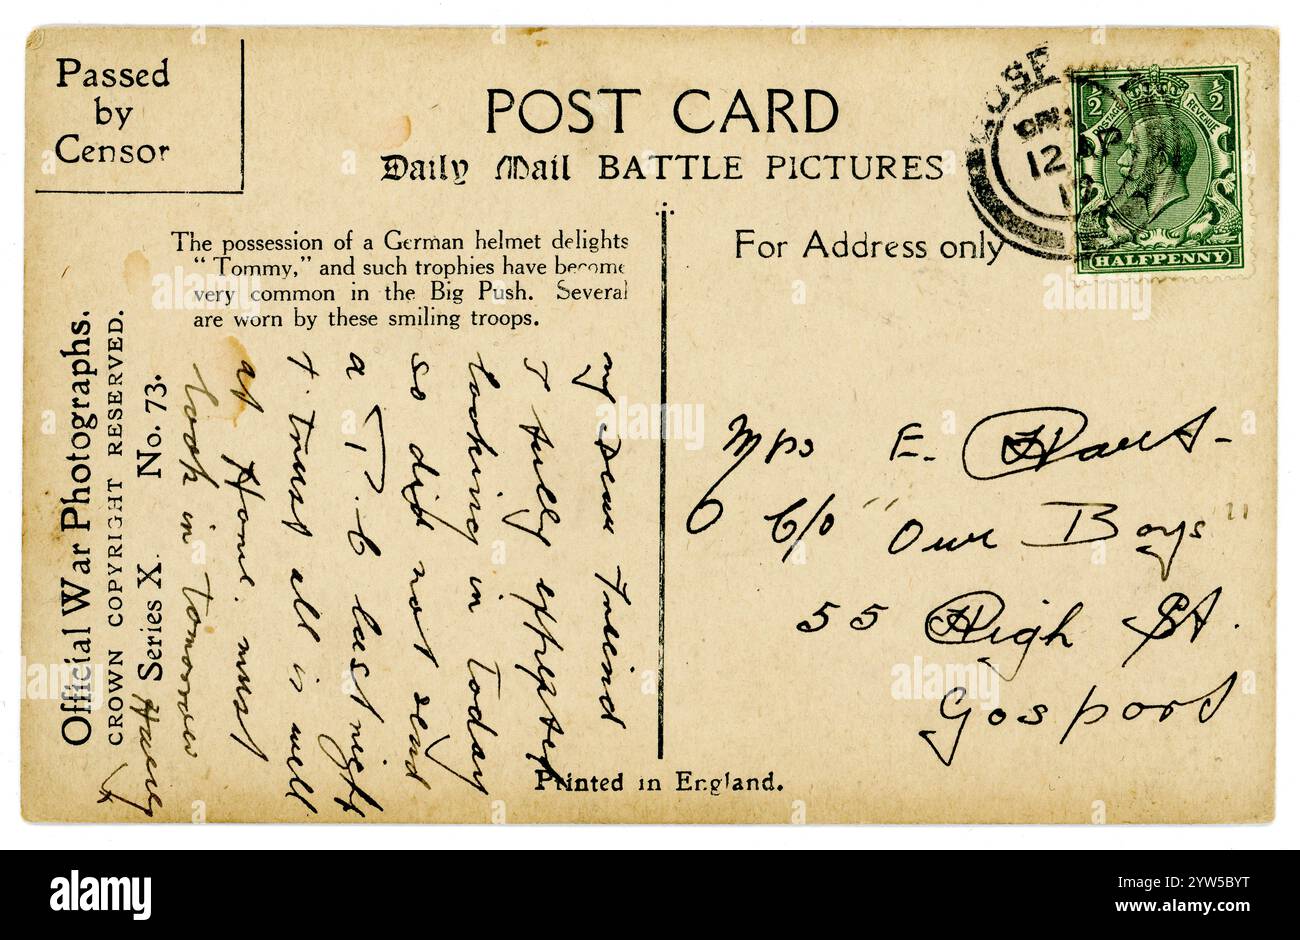 Passed
by
Censor
POST CARD
Daily Mail BATTLE PICTURES
The possession of a German helmet delights
"Tommy," and such trophies have become
very common in the Big Push. Several
are worn by these smiling troops.
For Address only
12 AP
HALFPENNY
½ ½
POSTAGE REVENUE
Official War Photographs.
CROWN COPYRIGHT RESERVED.
Series X. No. 73.
my Dear Friend
I fully expected
looking in Today
so did not send
a P.C last night
+ trust all is well
at Home. must
look in Tomorrow
Harry
x
Mrs E. Hart
C/o "Our Boys"
55 High St.
Gosport
Printed in England.
alamy
Image ID: 2YW5BYT
www.alamy.com